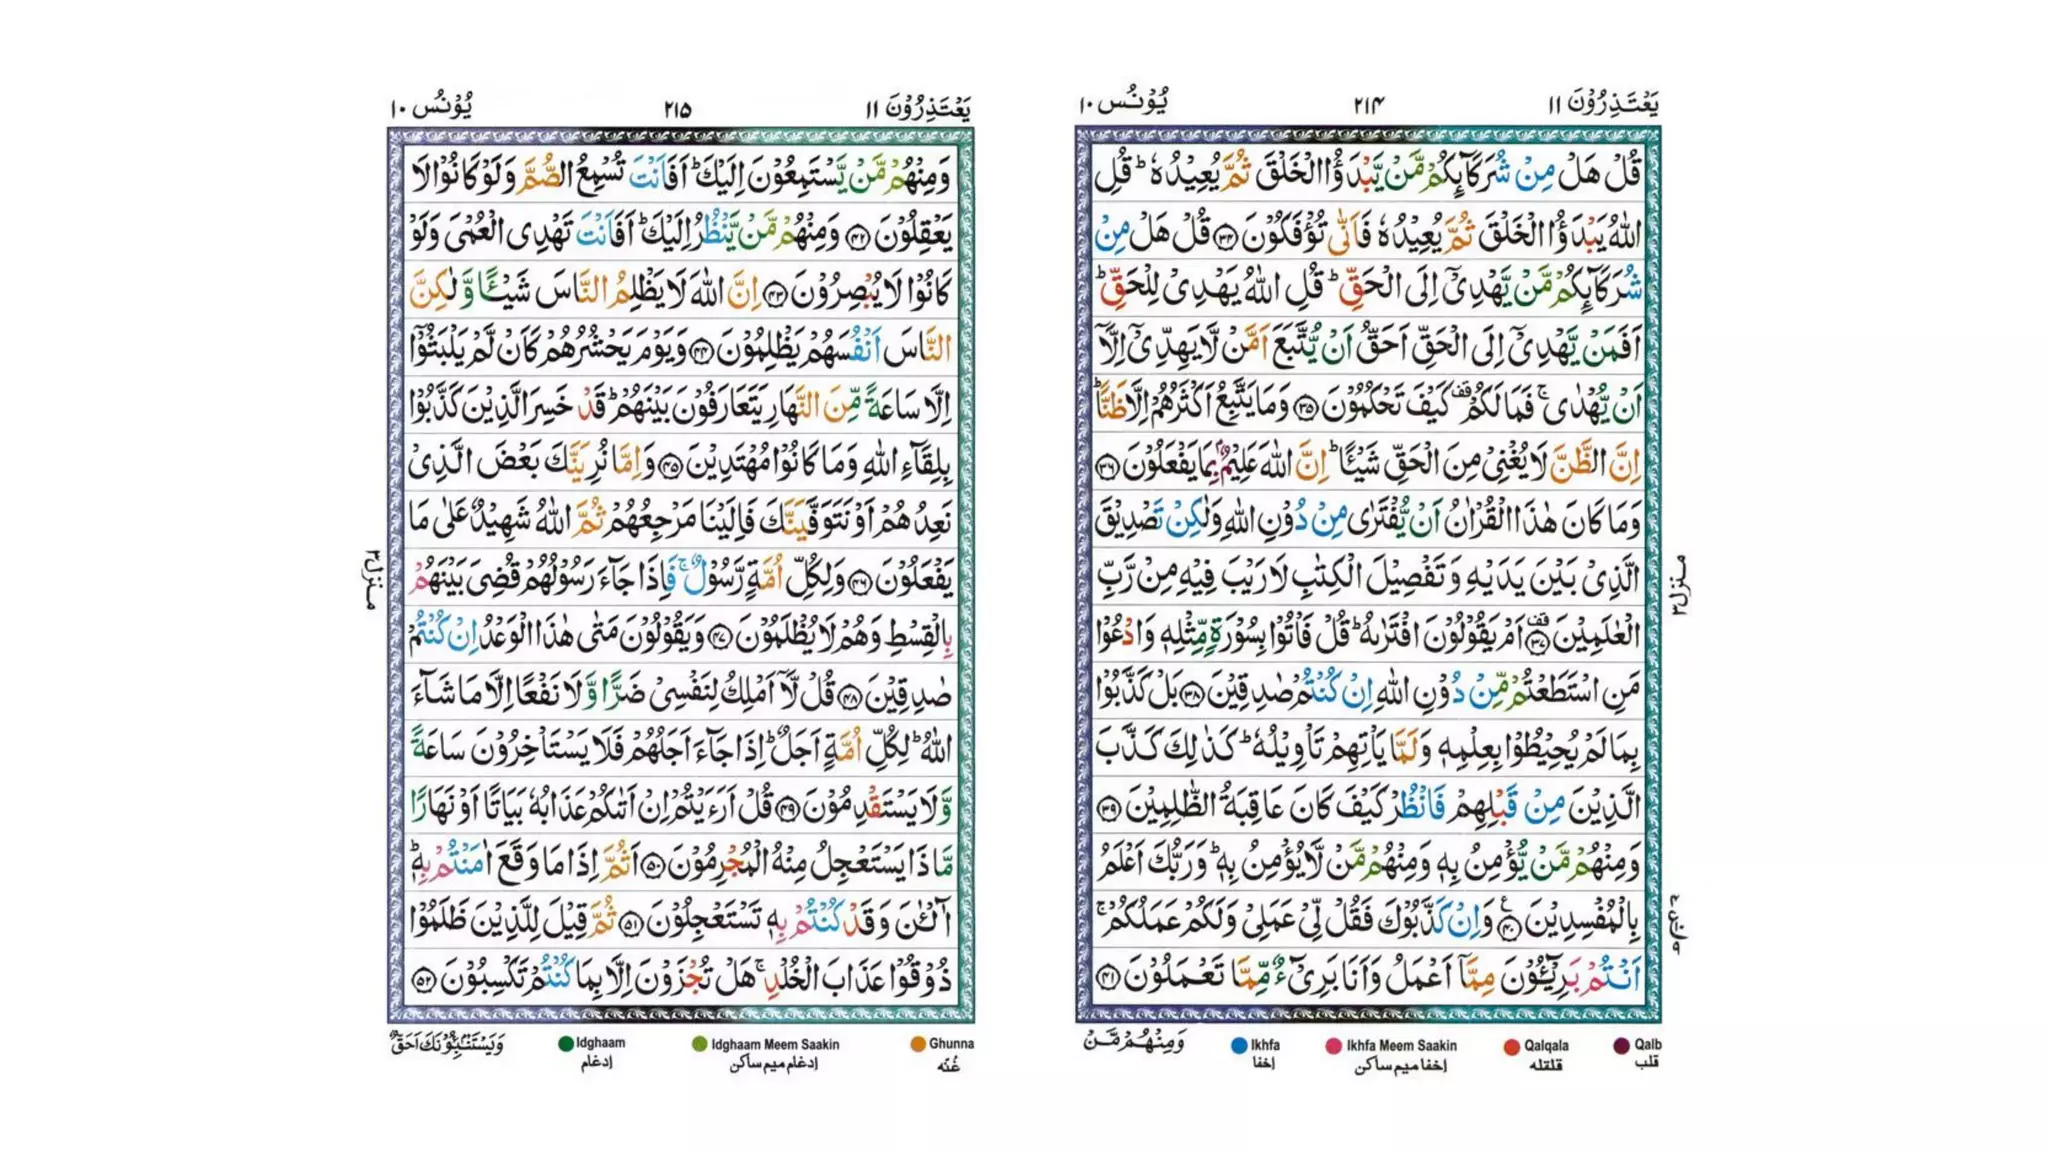 یَعْتَذِرُوْنَ ۱۱
۲۱۴
یُوْنُس ۱۰
قُلْ هَلْ مِنْ شُرَكَآئِكُمْ مَّنْ یَّبْدَؤُا الْخَلْقَ ثُمَّ یُعِیْدُهٗ ؕ قُلِ
اللّٰهُ یَبْدَؤُا الْخَلْقَ ثُمَّ یُعِیْدُهٗ فَاَنّٰی تُؤْفَكُوْنَ ۳۴ قُلْ هَلْ مِنْ
شُرَكَآئِكُمْ مَّنْ یَّهْدِیْۤ اِلَی الْحَقِّ ؕ قُلِ اللّٰهُ یَهْدِیْ لِلْحَقِّ ؕ
اَفَمَنْ یَّهْدِیْۤ اِلَی الْحَقِّ اَحَقُّ اَنْ یُّتَّبَعَ اَمَّنْ لَّا یَهِدِّیْۤ اِلَّاۤ
اَنْ یُّهْدٰی ۚ فَمَا لَكُمْ ۫ كَیْفَ تَحْكُمُوْنَ ۳۵ وَمَا یَتَّبِعُ اَكْثَرُهُمْ اِلَّا ظَنًّا ؕ
اِنَّ الظَّنَّ لَا یُغْنِیْ مِنَ الْحَقِّ شَیْئًا ؕ اِنَّ اللّٰهَ عَلِیْمٌۢ بِمَا یَفْعَلُوْنَ ۳۶
وَمَا كَانَ هٰذَا الْقُرْاٰنُ اَنْ یُّفْتَرٰی مِنْ دُوْنِ اللّٰهِ وَلٰكِنْ تَصْدِیْقَ
الَّذِیْ بَیْنَ یَدَیْهِ وَتَفْصِیْلَ الْكِتٰبِ لَا رَیْبَ فِیْهِ مِنْ رَّبِّ
الْعٰلَمِیْنَ ۳۷ اَمْ یَقُوْلُوْنَ افْتَرٰىهُ ؕ قُلْ فَاْتُوْا بِسُوْرَةٍ مِّثْلِهٖ وَادْعُوْا
مَنِ اسْتَطَعْتُمْ مِّنْ دُوْنِ اللّٰهِ اِنْ كُنْتُمْ صٰدِقِیْنَ ۳۸ بَلْ كَذَّبُوْا
بِمَا لَمْ یُحِیْطُوْا بِعِلْمِهٖ وَلَمَّا یَاْتِهِمْ تَاْوِیْلُهٗ ؕ كَذٰلِكَ كَذَّبَ
الَّذِیْنَ مِنْ قَبْلِهِمْ فَانْظُرْ كَیْفَ كَانَ عَاقِبَةُ الظّٰلِمِیْنَ ۳۹
وَمِنْهُمْ مَّنْ یُّؤْمِنُ بِهٖ وَمِنْهُمْ مَّنْ لَّا یُؤْمِنُ بِهٖ ؕ وَرَبُّكَ اَعْلَمُ
بِالْمُفْسِدِیْنَ ۴۰ وَاِنْ كَذَّبُوْكَ فَقُلْ لِّیْ عَمَلِیْ وَلَكُمْ عَمَلُكُمْ ۚ
اَنْتُمْ بَرِیْٓئُوْنَ مِمَّاۤ اَعْمَلُ وَاَنَا بَرِیْٓءٌ مِّمَّا تَعْمَلُوْنَ ۴۱
وَمِنْهُمْ مَّنْ
منزل ۳
Ikhfa
اخفا
Ikhfa Meem Saakin
اخفا میم ساکن
Qalqala
قلقله
Qalb
قلب
یَعْتَذِرُوْنَ ۱۱
۲۱۵
یُوْنُس ۱۰
وَمِنْهُمْ مَّنْ یَّسْتَمِعُوْنَ اِلَیْكَ ؕ اَفَاَنْتَ تُسْمِعُ الصُّمَّ وَلَوْ كَانُوْا لَا
یَعْقِلُوْنَ ۴۲ وَمِنْهُمْ مَّنْ یَّنْظُرُ اِلَیْكَ ؕ اَفَاَنْتَ تَهْدِی الْعُمْیَ وَلَوْ
كَانُوْا لَا یُبْصِرُوْنَ ۴۳ اِنَّ اللّٰهَ لَا یَظْلِمُ النَّاسَ شَیْئًا وَّلٰكِنَّ
النَّاسَ اَنْفُسَهُمْ یَظْلِمُوْنَ ۴۴ وَیَوْمَ یَحْشُرُهُمْ كَاَنْ لَّمْ یَلْبَثُوْۤا
اِلَّا سَاعَةً مِّنَ النَّهَارِ یَتَعَارَفُوْنَ بَیْنَهُمْ ؕ قَدْ خَسِرَ الَّذِیْنَ كَذَّبُوْا
بِلِقَآءِ اللّٰهِ وَمَا كَانُوْا مُهْتَدِیْنَ ۴۵ وَاِمَّا نُرِیَنَّكَ بَعْضَ الَّذِیْ
نَعِدُهُمْ اَوْ نَتَوَفَّیَنَّكَ فَاِلَیْنَا مَرْجِعُهُمْ ثُمَّ اللّٰهُ شَهِیْدٌ عَلٰی مَا
یَفْعَلُوْنَ ۴۶ وَلِكُلِّ اُمَّةٍ رَّسُوْلٌ ۚ فَاِذَا جَآءَ رَسُوْلُهُمْ قُضِیَ بَیْنَهُمْ
بِالْقِسْطِ وَهُمْ لَا یُظْلَمُوْنَ ۴۷ وَیَقُوْلُوْنَ مَتٰی هٰذَا الْوَعْدُ اِنْ كُنْتُمْ
صٰدِقِیْنَ ۴۸ قُلْ لَّاۤ اَمْلِكُ لِنَفْسِیْ ضَرًّا وَّلَا نَفْعًا اِلَّا مَا شَآءَ
اللّٰهُ ؕ لِكُلِّ اُمَّةٍ اَجَلٌ ؕ اِذَا جَآءَ اَجَلُهُمْ فَلَا یَسْتَاْخِرُوْنَ سَاعَةً
وَّلَا یَسْتَقْدِمُوْنَ ۴۹ قُلْ اَرَءَیْتُمْ اِنْ اَتٰىكُمْ عَذَابُهٗ بَیَاتًا اَوْ نَهَارًا
مَّاذَا یَسْتَعْجِلُ مِنْهُ الْمُجْرِمُوْنَ ۵۰ اَثُمَّ اِذَا مَا وَقَعَ اٰمَنْتُمْ بِهٖ ؕ
آٰلْـٰٔنَ وَقَدْ كُنْتُمْ بِهٖ تَسْتَعْجِلُوْنَ ۵۱ ثُمَّ قِیْلَ لِلَّذِیْنَ ظَلَمُوْا
ذُوْقُوْا عَذَابَ الْخُلْدِ ۚ هَلْ تُجْزَوْنَ اِلَّا بِمَا كُنْتُمْ تَكْسِبُوْنَ ۵۲
وَیَسْتَنْۢبِئُوْنَكَ اَحَقٌّ
منزل ۳
Idghaam
إدغام
Idghaam Meem Saakin
إدغام میم ساکن
Ghunna
غُنّه